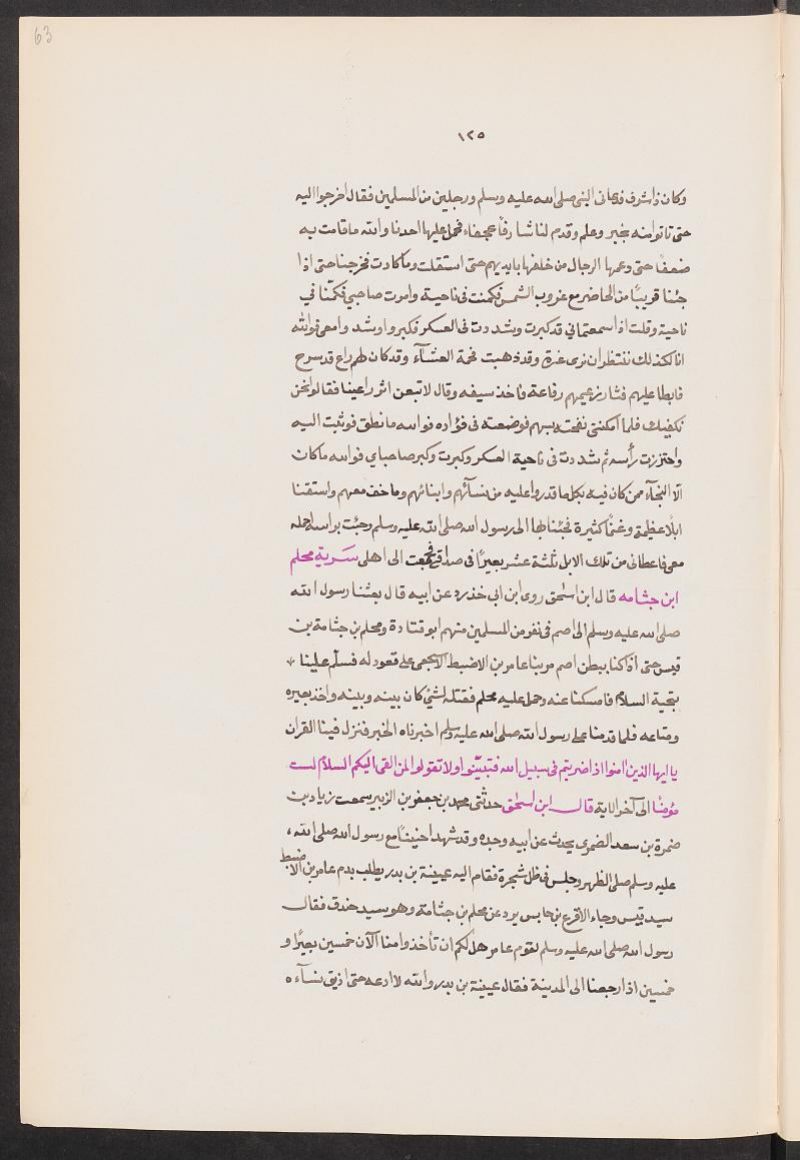 63
١٢٥
وكان ذا شرف فدعاني النبي صلى الله عليه وسلم ورجلين من المسلمين فقال اخرجوا اليه
حتى تاتوا منه بخبر وعلم وقدم لنا شارفا عجفاء فحمل عليها احدنا والله ما قامت به
ضعفًا حتى دعمها الرجال من خلفها بايديهم حتى استقلت وما كادت فخرجنا حتى اذا
جئنا قريبًا من الحاضر مع غروب الشمس فكمنت في ناحية وامرت صاحبي فكمنا في
ناحية وقلت اذا سمعتماني قد كبرت وشددت في العسكر فكبروا وشد وامعي فوالله
انا لكذلك ننتظر ان نرى غرة وقد ذهبت فحمة العشاء وقد كان لهم راع قد سرح
فابطا عليهم فثار زعيمهم رفاعة فاخذ سيفه وقال لاتبعن اثر راعينا فقالوا نحن
نكفيك فلما امكنني نفحته بسهم فوضعته في فؤاده فوالله ما نطق فوثبت اليه
واحتززت رأسه ثم شددت في ناحية العسكر وكبرت وكبر صاحباي فوالله ما كان
الا النجآء ممن كان فيه بكل ما قدروا عليه من نسآئهم وابنائهم وما خف معهم واستقنا
ابلًا عظيمة وغنمًا كثيرة فجئنا بها الى رسول الله صلى الله عليه وسلم وجئت براسه احمله
معي فاعطاني من تلك الابل ثلثة عشر بعيرًا في صداقي فجمعت الى اهلي سرية محلم
ابن جثامه قال ابن اسحق روى ابن ابي خذرد عن ابيه قال بعثنا رسول الله
صلى الله عليه وسلم الى اصم في نفر من المسلمين منهم ابو قتادة ومحلم بن جثامة بن
قيس حتى اذا كنا ببطن اصم مر بنا عامر بن الاضبط الاشجعي على قعود له فسلم علينا
بتحية السلام فامسكنا عنه وحمل عليه محلم فقتله لشيء كان بينه وبينه واخذ بعيره
ومتاعه فلما قدمنا على رسول الله صلى الله عليه وسلم اخبرناه الخبر فنزل فينا القران
يا ايها الذين امنوا اذا ضربتم في سبيل الله فتبينوا ولا تقولوا لمن القى اليكم السلام لست
مؤمنًا الى آخر الاية قال ابن اسحق حدثني محمد بن جعفر بن الزبير سمعت زياد بن
ضمرة بن سعد الضمري يحدث عن ابيه وجده وقد شهدا حنينًا مع رسول الله صلى الله
عليه وسلم صلى الظهر وجلس في ظل شجرة فقام اليه عيينة بن بدر يطلب بدم عامر بن الاضبط
سيد قيس وجاء الاقرع بن حابس يرد عن محلم بن جثامة وهو سيد خندف فقال
رسول الله صلى الله عليه وسلم لقوم عامر هل لكم ان تأخذوا منا الآن خمسين بعيرًا و
خمسين اذا رجعنا الى المدينة فقال عيينة بن بدر والله لا ادعه حتى اذيق نسآءه